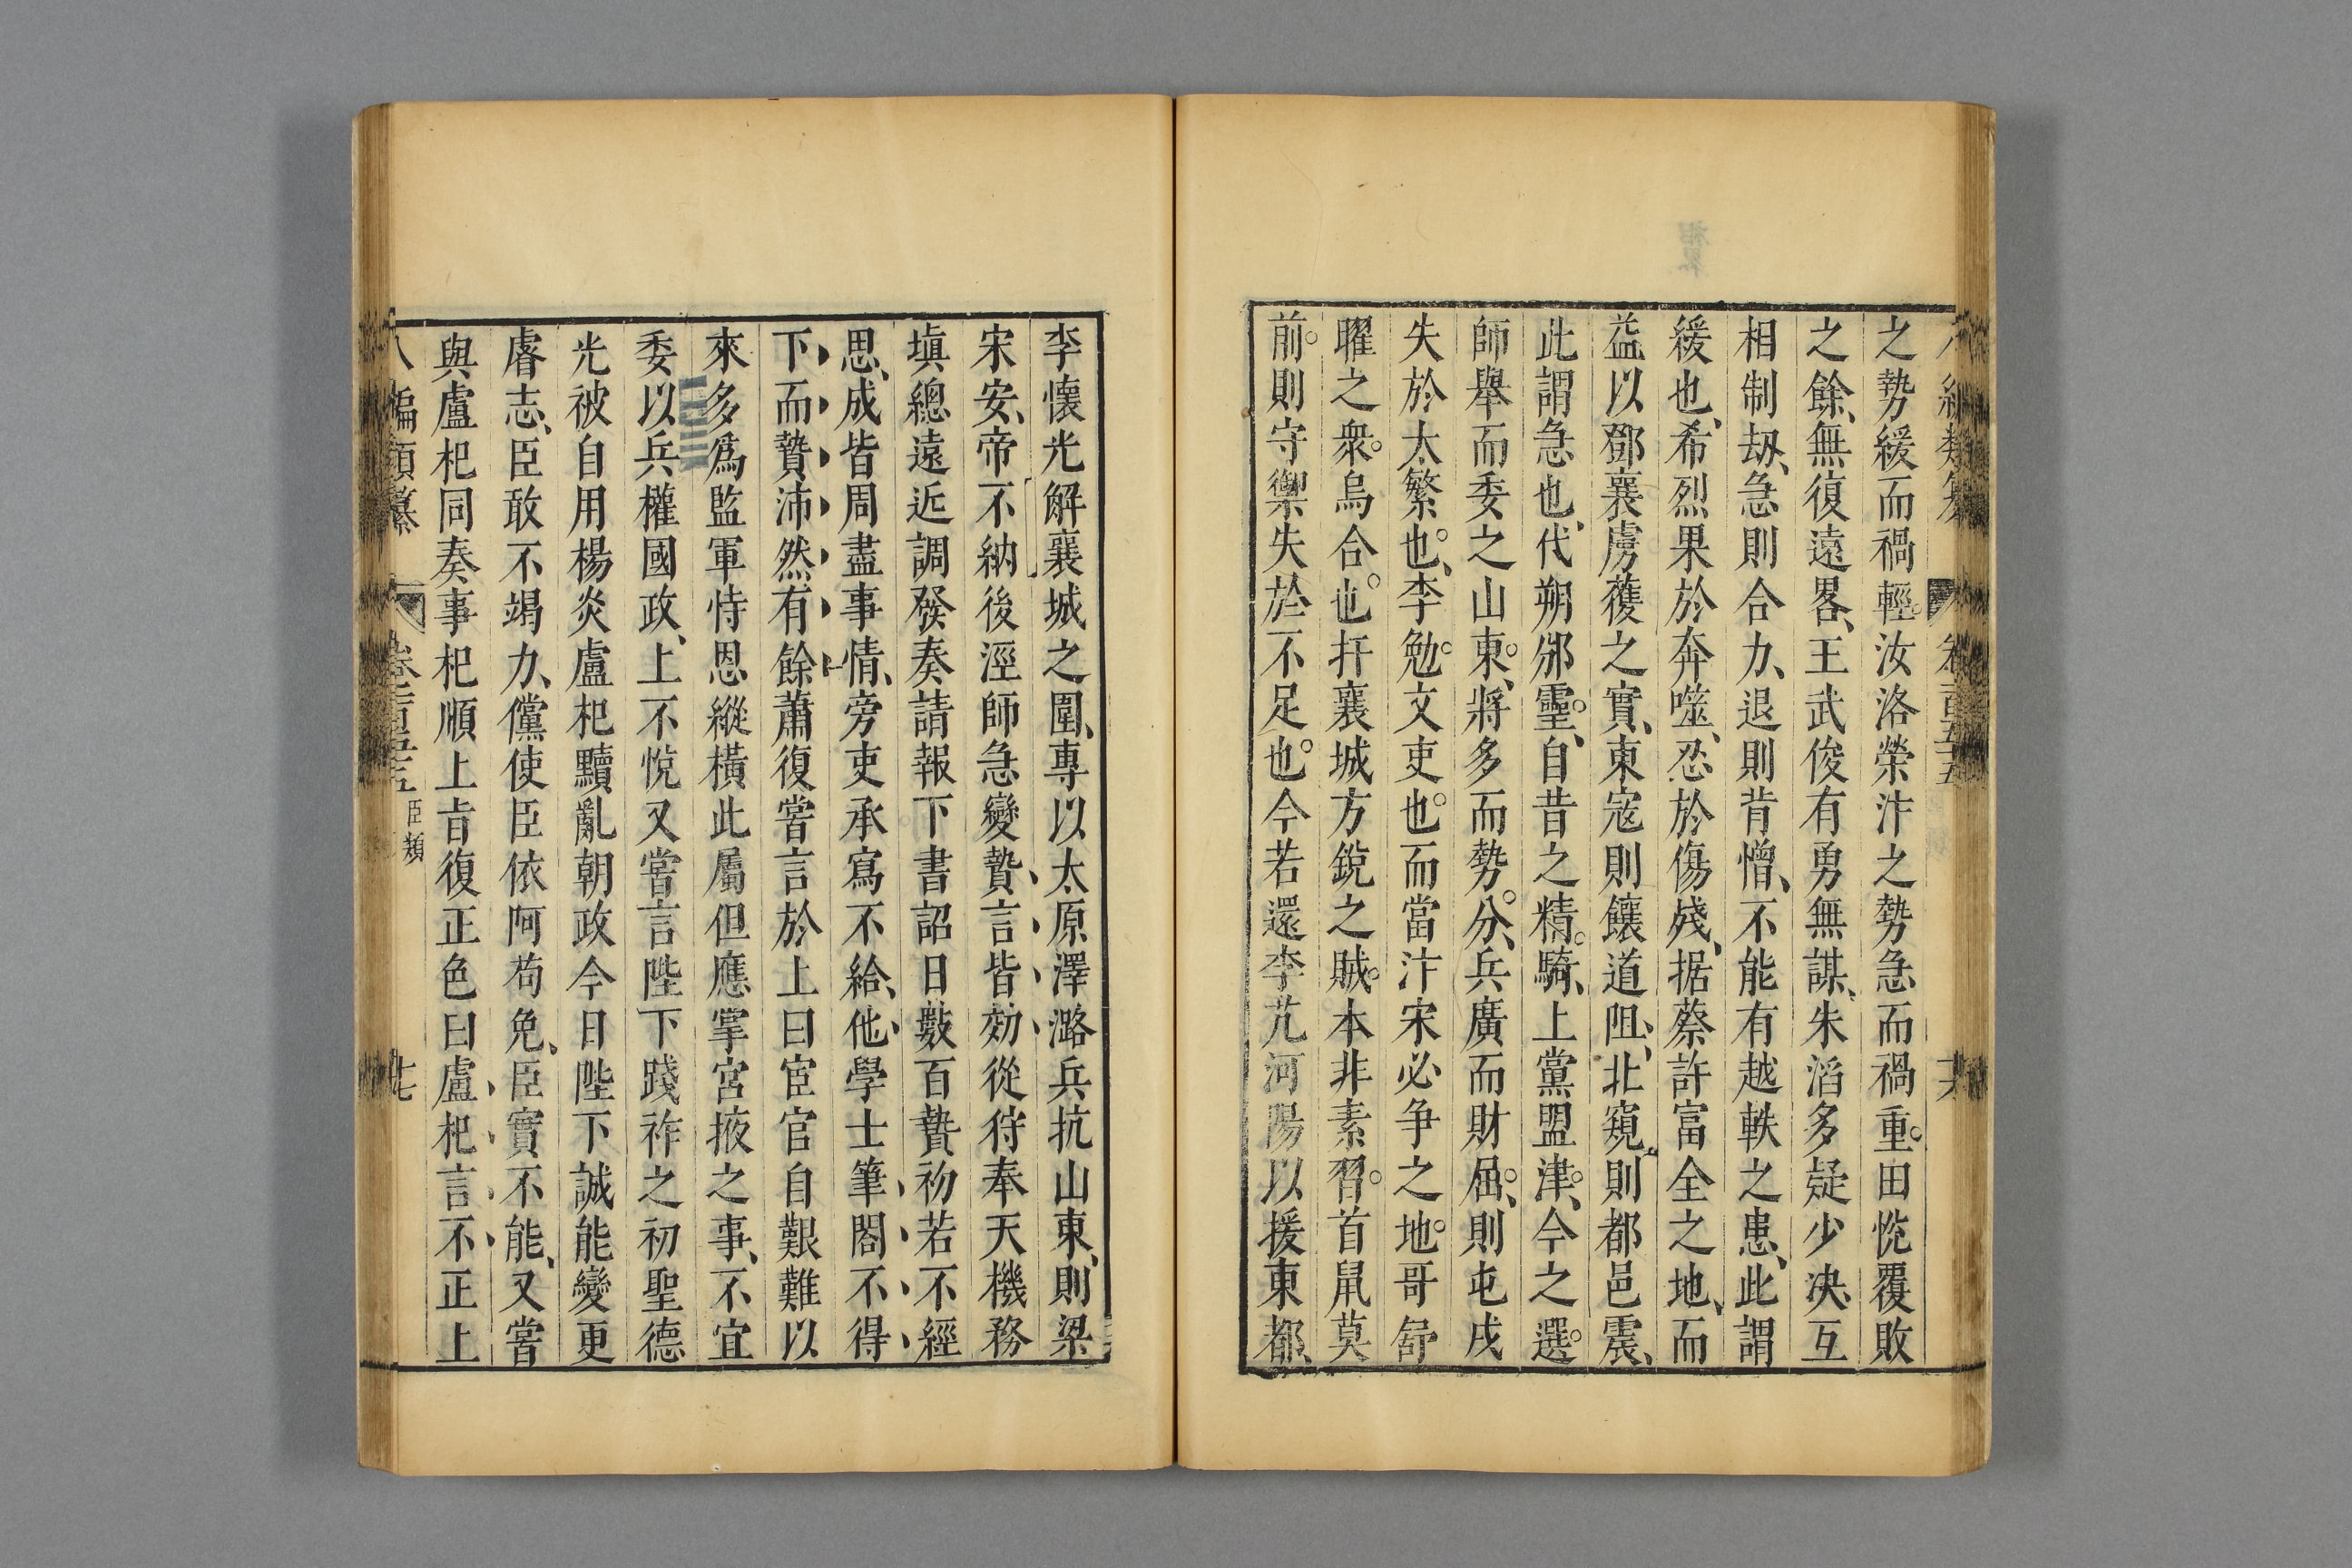 之勢緩而禍輕。汝洛榮汴之勢急而禍重。田恱覆敗
之餘、無復遠畧、王武俊有勇無謀、朱滔多疑少决、互
相制刼、急則合力、退則背憎、不能有越軼之患、此謂
緩也、希烈果於奔噬、忍於傷殘、据蔡許富全之地、而
益以鄧襄虜獲之實、東寇則饟道阻、北窺、則都邑震、
此謂急也、代朔邠靈。、自昔之精。騎、上黨盟津。、今之選。
師舉而委之山東。、將多而勢。分、兵廣而財屈。、則屯戍
失於太繁也。、李勉。文吏也。而當汴宋必争之地。哥舒
曜之衆。烏合。也扞襄城方銳之賊。本非素習。首鼠莫
前。則守禦失於不足也。今若還李芃河陽以援東都、
李懷光解襄城之圍、專以太原澤潞兵抗山東、則梁
宋安、帝不納後涇師急變贄、言、皆、効、從狩奉天機務
塡總遠近調發奏請報下書詔日數百贄初若不經
思、成皆周盡事情、旁吏承寫不給、他、學士筆、閣、不、得、
下、而、贄、沛、然、有、餘蕭復嘗言於上曰宦官自艱難以
來多爲監軍恃恩縱橫此屬但應掌宮掖之事、不宜
委以兵權國政、上不恱又嘗言陛下踐祚之初聖德
光被自用楊炎盧杞黷亂朝政今日陛下誠能變更
睿志、臣敢不竭力、儻使臣依阿苟免、臣實不能、又嘗
與盧杞同奏事杞順上旨復正色曰盧、杞、言、不、正上
八編類纂 卷一百五十五 臣類 十七